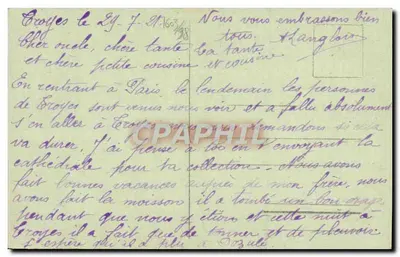 Troyes le 29-7-21
Nous vous embrassons bien
tous. Langlois
Cher oncle, chère tante
La tante
et chère petite cousine et cousine
En rentrant à Paris, le lendemain les personnes
de Troyes sont venus nous voir et a fallu absolument
s'en aller à Troyes nous demandons si
va durer, J'ai pensé à toi en t'envoyant la
cathédrale pour ta collection. Nous avons
fait bonnes vacances auprès de mon frère, nous
avons fait la moisson il a tombé un bon orage
pendant que nous y étions et cette nuit à
Troyes il a fait que de tonner et de pleuvoir
J'espère qu'il a plu à